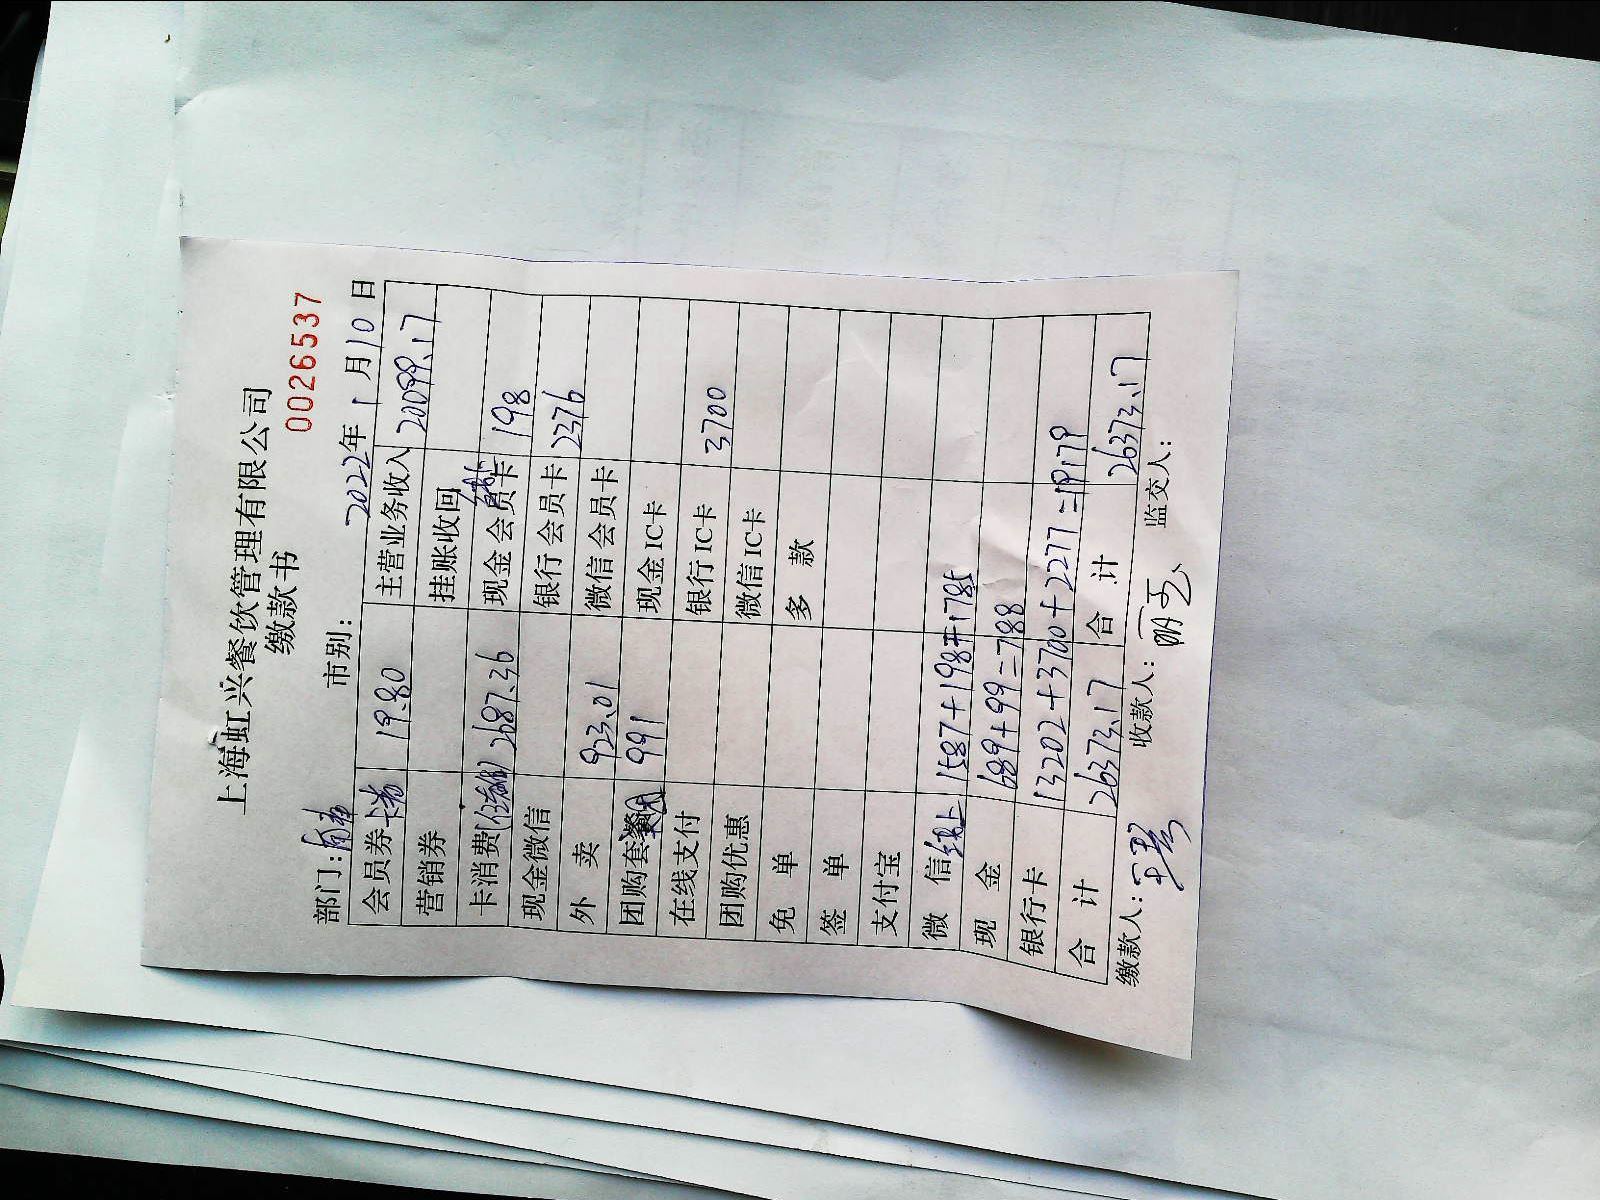 上海虹兴餐饮管理有限公司
缴款书
0026537
部门: 市别: 2022年1月10日
会员券 19.80 主营业务收入 20099.17
营销券 挂账收回
卡消费 2687.36 现金会员卡 198
现金微信 银行会员卡 2376
外 卖 923.01 微信会员卡
团购套餐 991 现金IC卡
在线支付 银行IC卡 3700
团购优惠 微信IC卡
免 单 多 款
签 单
支付宝
微 信 线上 1587+198=1785
现 金 689+99=788
银行卡 13202+3700+2277=19179
合 计 26373.17 合 计 26373.17
缴款人: 收款人: 监交人: